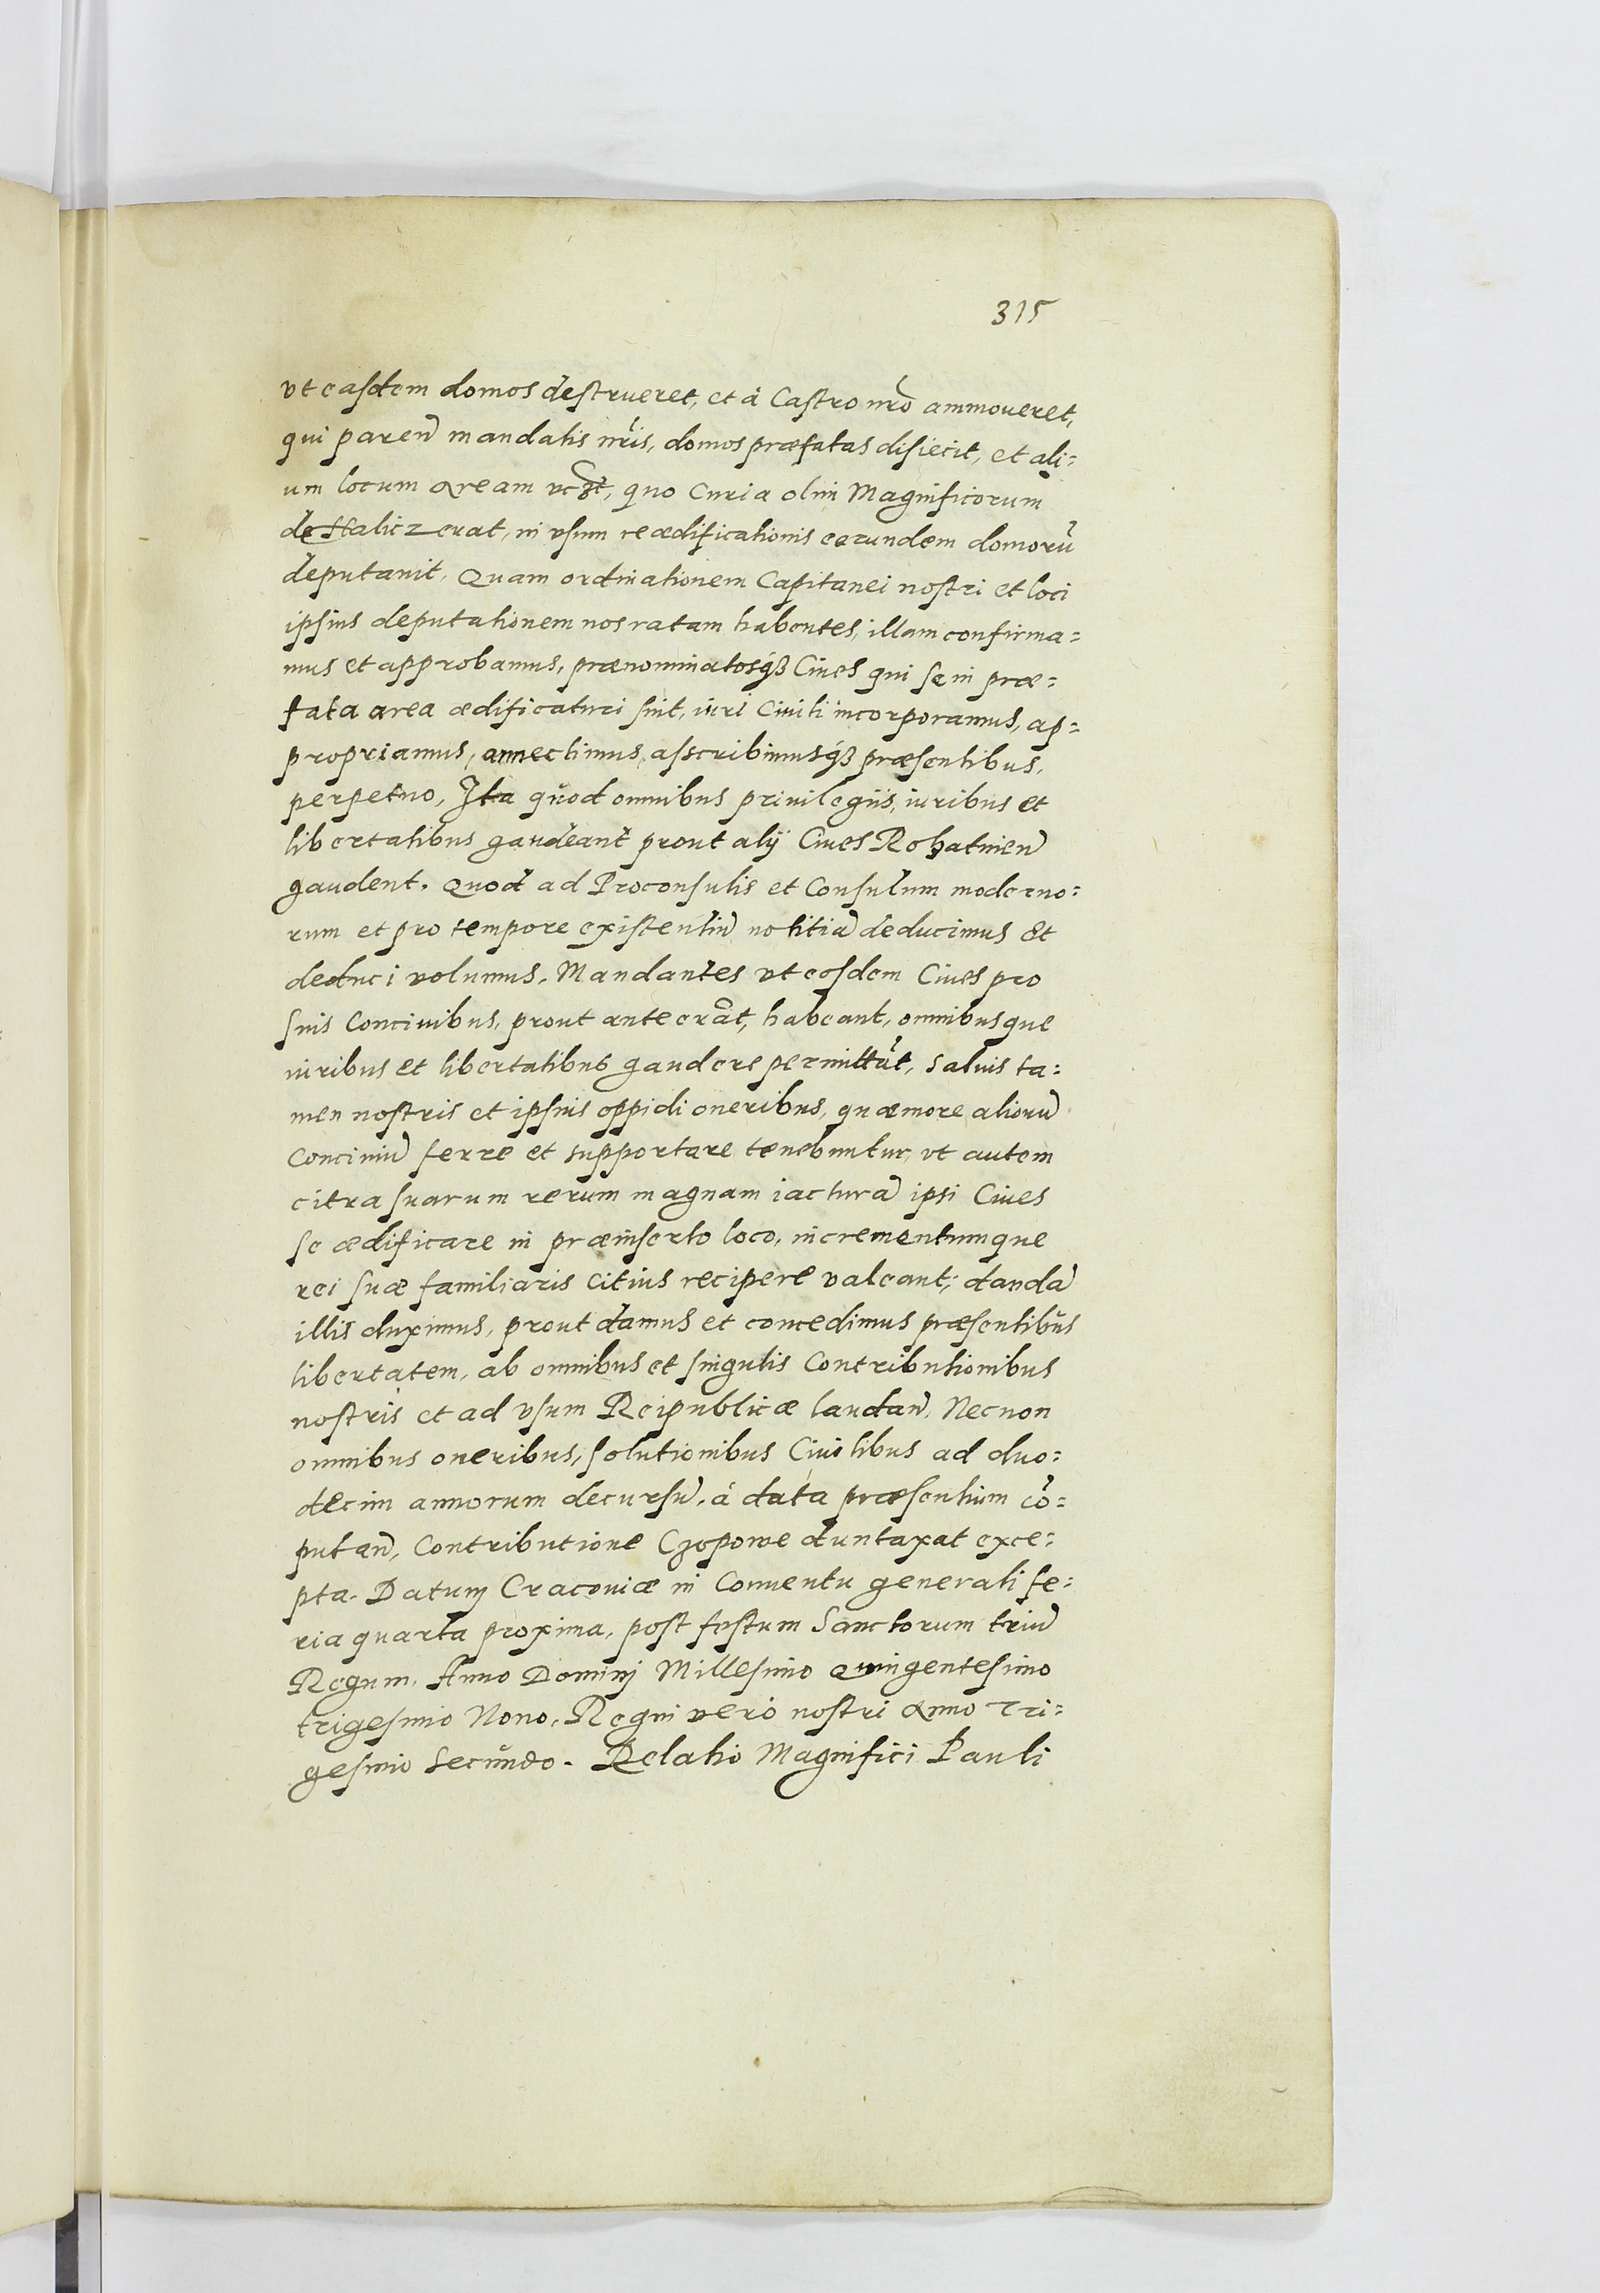 315
vt easdem domos destrueret, et à Castro nrõ ammoueret,
qui pareñ mandatis nr̃is, domos præfatas disiecit, et ali=
um locum aream vczt, quo Curia olim Magnificorum
de Halicz erat, in vsum reædificationis earundem domorũ
deputauit. Quam ordinationem Capitanei nostri et loci
ipsius deputationem nos ratam habentes, illam confirma=
mus et approbamus, prænominatosq́ꝫ Ciues qui se in præ=
fata area ædificaturi sint, iuri Ciuili incorporamus, ap=
propriamus, annectimus, asscribimusq́ꝫ præsentibus,
perpetuo, Ita quod omnibus priuilegiis, iuribus et
libertatibus gaudeant prout alÿ Ciues Rohatineñ
gaudent. Quod ad Proconsulis et Consulum moderno=
rum et pro tempore existentiũ notitiã deducimus et
deduci volumus. Mandantes vt eosdem Ciues pro
suis Conciuibus, prout ante erãt, habeant, omnibusque
iuribus et libertatibus gaudere permittãt, Saluis ta=
men nostris et ipsius oppidi oneribus, quæ more aliorũ
Conciuiũ ferre et supportare tenebuntur, vt autem
citra suarum rerum magnam iacturã ipsi Ciues
se ædificare in præinserto loco, incrementumque
rei suæ familiaris citius recipere valeant, dandã
illis duximus, prout damus et concedimus præsentibus
libertatem, ab omnibus et singulis Contributionibus
nostris et ad vsum Reipublicæ laudañ, Necnon
omnibus oneribus, solutionibus Ciuilibus ad duo=
decim annorum decursũ, à data præsentium cõ=
putañ, Contributione Czopowe duntaxat exce=
pta. Datum Cracouiæ in Conuentu generali fe=
ria quarta proxima, post festum Sanctorum triũ
Regum, Anno Dominj Millesimo Quingentesimo
trigesimo Nono, Regni verò nostri Anno Tri=
gesimo Secundo. Relatio Magnifici Pauli